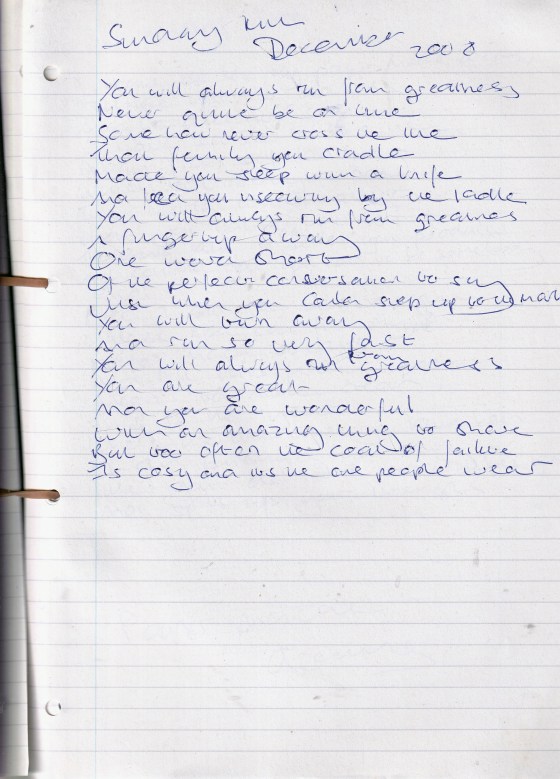 Sunday
December 2008
You will always run from greatness
Never quite be on time
Somehow never cross the line
Your family you cradle
Made you sleep with a knife
And feed you insecurity by the ladle
You will always run from greatness
A fingertip away
One word short
Of the perfect conversation to say
Just when you could step up to the mark
You will turn away
And run so very fast
You will always run from greatness
You are great
And you are wonderful
With an amazing thing to share
But too often the coat of failure
Is cosy and its the one people wear